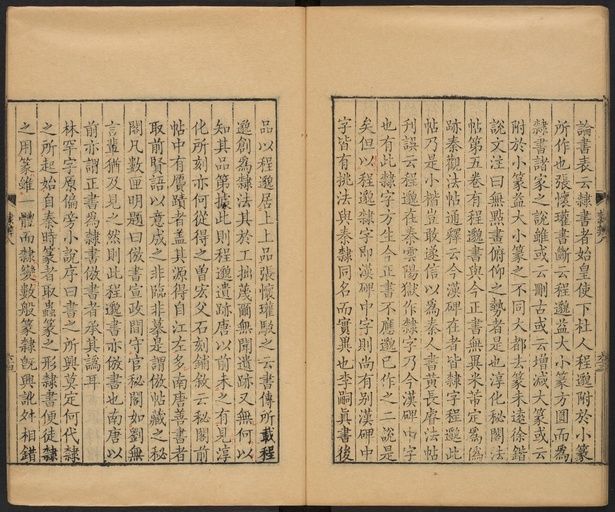 論書表云隸書者始皇使下杜人程邈附於小篆
所作也張懷瓘書斷云程邈益大小篆方圓而爲
隸書諸家之說雖或云刪古或云增減大篆或云
附於小篆益大小篆之不同大都去篆未遠徐鍇
說文注曰無點畫俯仰之勢者是也淳化秘閣法
帖第五卷有程邈書與今正書無異米芾定爲僞
跡秦觀法帖通釋云今漢碑在者皆隸字程邈此
帖乃是小楷豈敢遂信以爲秦人書黃長睿法帖
刊誤云程邈在秦雲陽獄作隸字乃今漢碑中字
也有此隸字方生今正書不應邈已作之二說是
矣但以程邈隸字即漢碑中字則尚有别漢碑中
字皆有挑法與秦隸同名而實異也李嗣眞書後
品以程邈居上上品張懷瓘駮之云書傳所載程
邈創爲隸法其於工拙蔑爾無聞遺跡又無何以
知其品第據此則程邈遺跡唐以前未之有見淳
化所刻亦何從得之曾宏父石刻鋪敘云秘閣前
帖中有贋蹟者盖其源得自江左多南唐善書者
取前賢語以意成之非臨非摹是謂倣帖藏之秘
閣凡數匣明題曰倣書宣政間守官秘閣如劉無
言輩猶及見之然則此程邈書亦倣書也南唐以
前亦謂正書爲隸書倣書者承其譌耳
林罕字原偏旁小說序曰書之所興莫定何代隸
之所起始自秦時篆者取蟲篆之形隸書便徒隸
之用篆雖一體而隸變數般篆隸旣興訛舛相錯
隸辨八